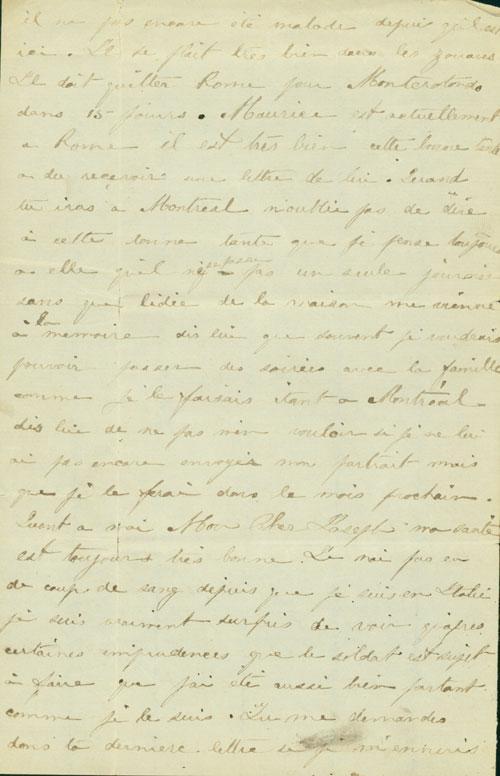 il na pas encore été malade depuis qu'il est
ici. Il se plait très bien dans les zouaves
Il doit quitter Rome pour Monterotondo
dans 15 jours. Maurice est actuellement
a Rome il est très bien cette bonne tante
a du reçevoir une lettre de lui. Quand
tu iras à Montréal n'oublie pas de dire
à cette bonne tante que je pense toujours
a elle qu'il ne se passe pas un seule journée
sans que l'idée de la maison me vienne
à la mémoire dis lui que souvent je voudrais
pouvoir passer des soirées avec la famille
comme je le faisais étant a Montréal
dis lui de ne pas m'en vouloir si je ne lui
ai pas encore envoyer mon portrait mais
que je le ferai dans le mois prochain.
Quant a moi Mon Cher Joseph ma santé
est toujours très bonne. Je n'ai pas eu
de coup de sang depuis que je suis en Italie
je suis vraiment surpris de voir qu'apres
certaines imprudences que le soldat est sujet
à faire que j'ai été aussi bien portant
comme je le suis. Tu me demandes
dans ta derniere lettre si je m'ennuis